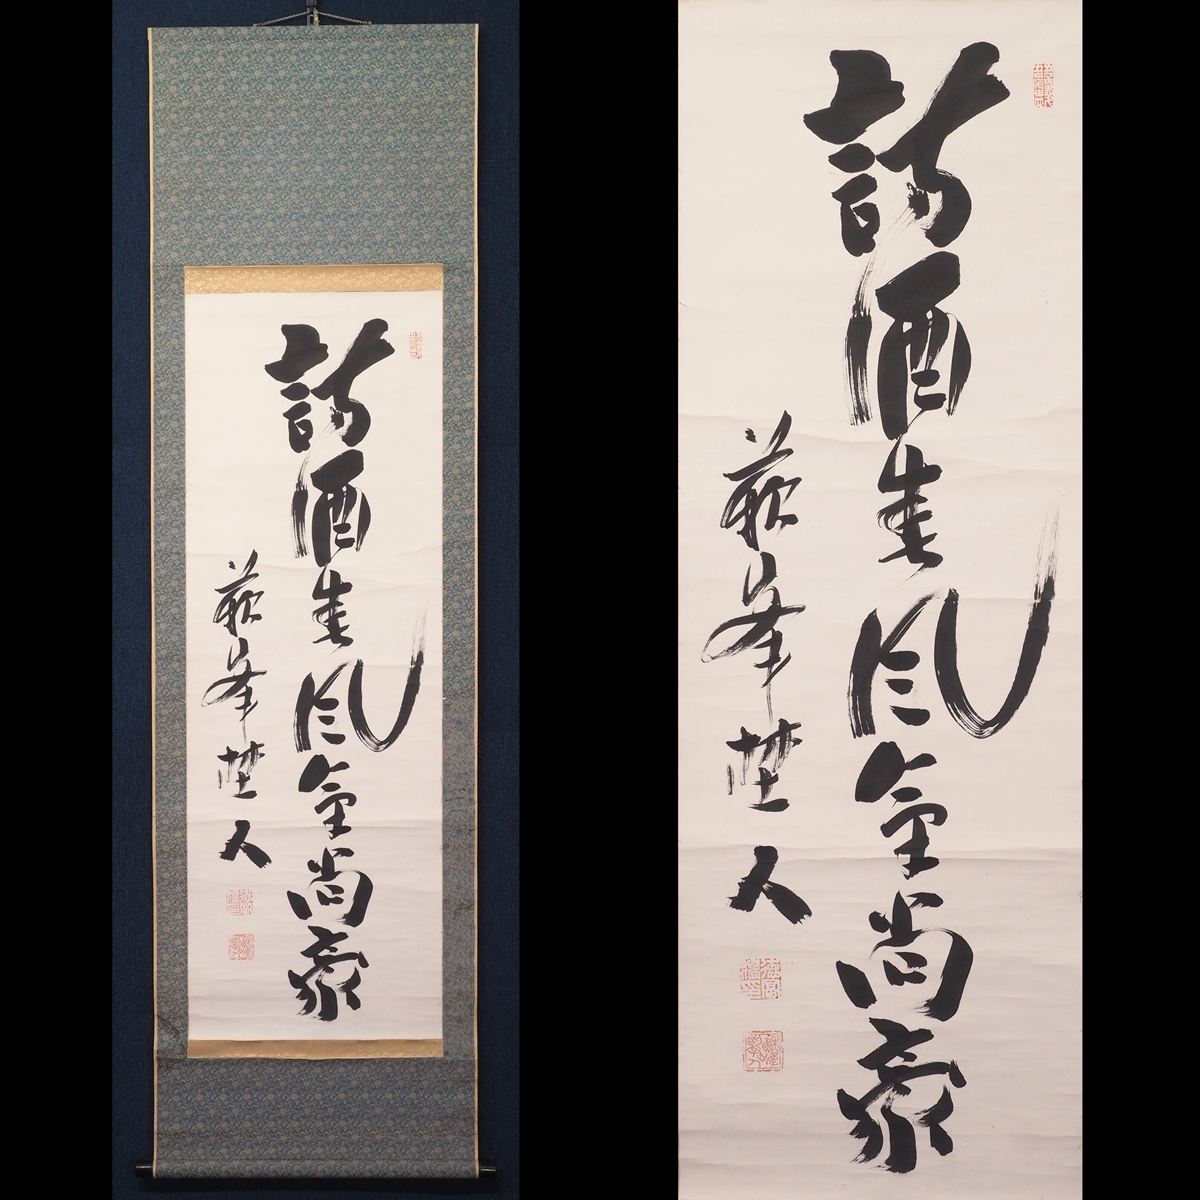 詩酒生風氣尚豪
蘇峯埜人
詩酒生風氣尚豪
蘇峯埜人